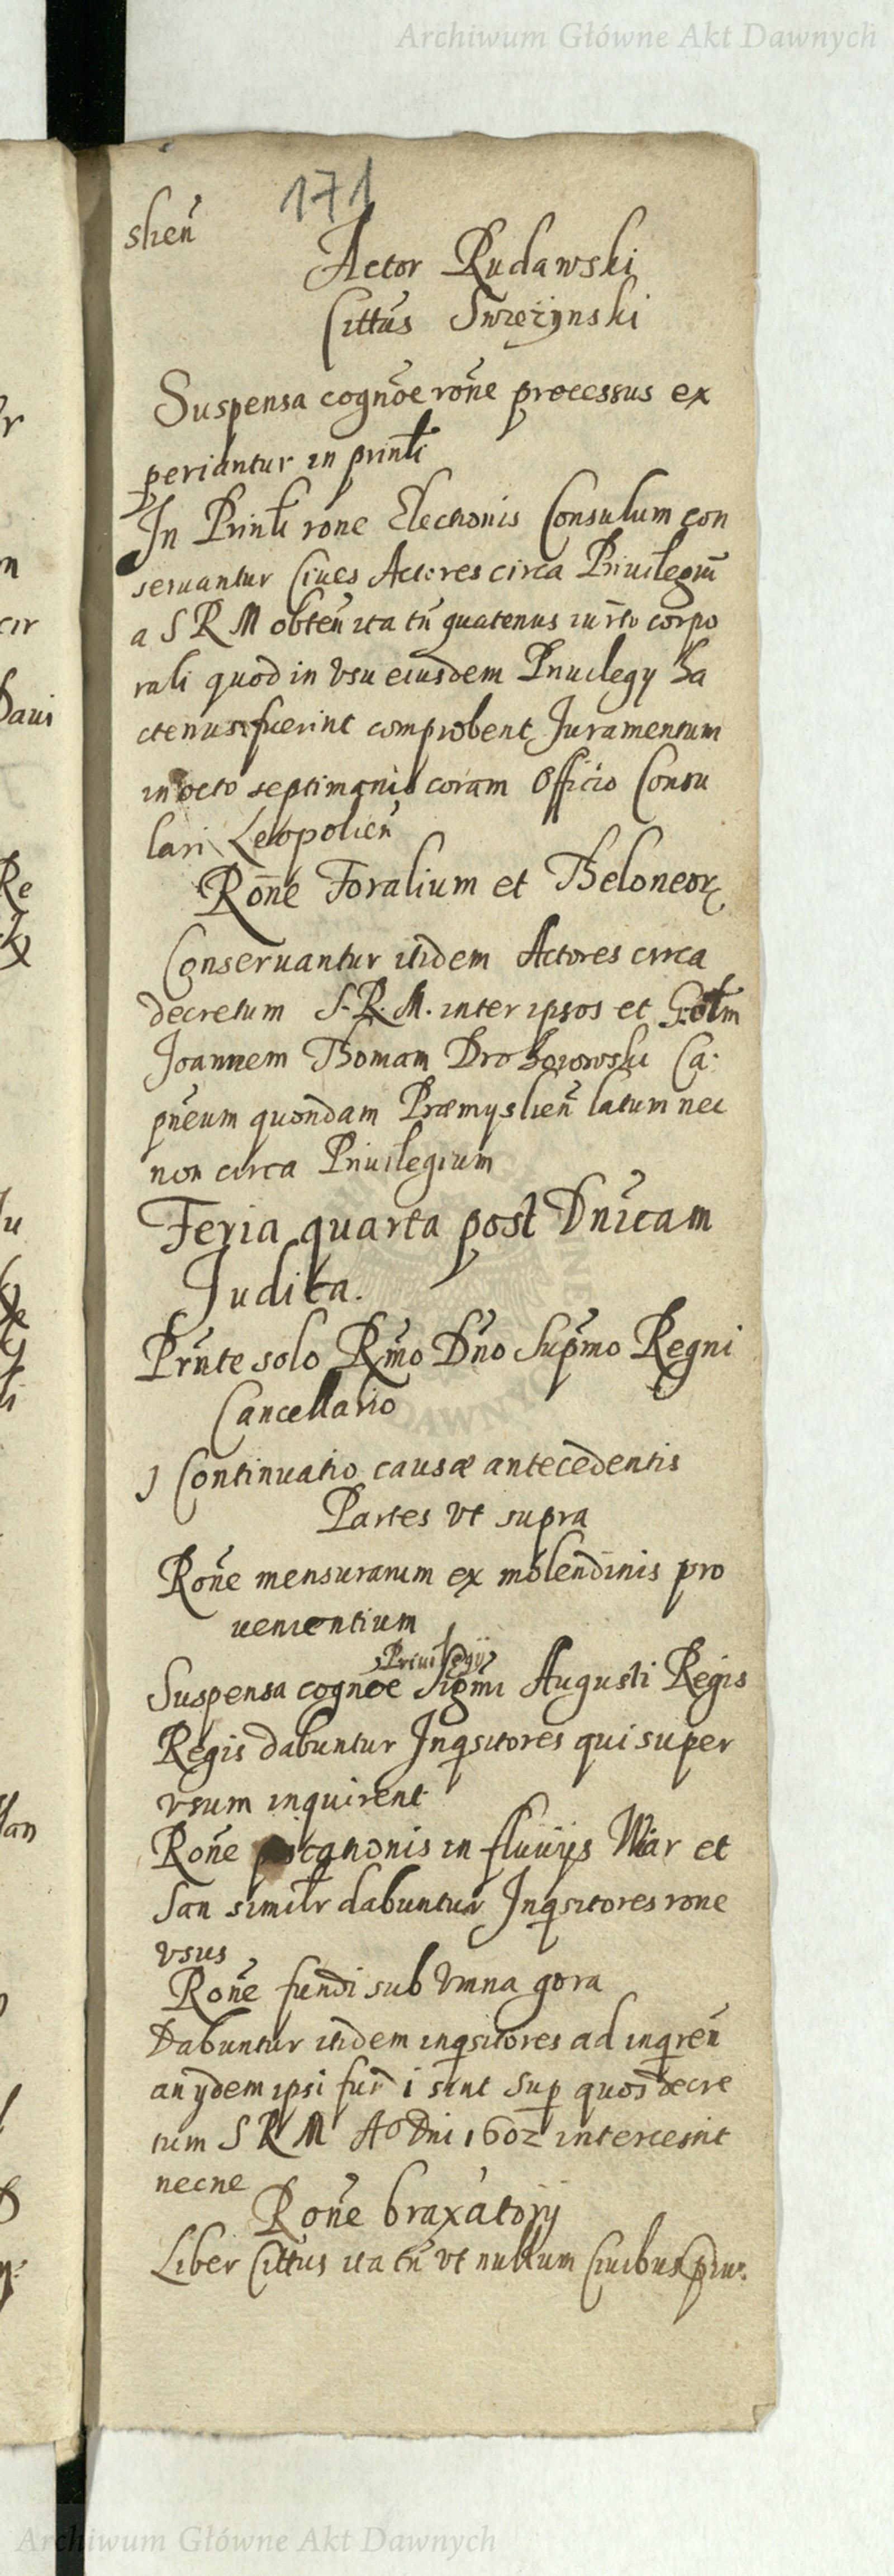 Archiwum Główne Akt Dawnych
171
slień
Actor Rudawski
Cittūs Swieżynski
Suspensa cognōe rōne processus ex
periantur in prinłi
In Prinłi rone Electionis Consulum con
seruantur Ciues Actores circa Priuilegiū
a S R M obteñ ita tñ quatenus iurīto corpo
rali quod in vsu eiusdem Priuilegy ha
ctenus fuerint comprobent Juramentum
in octo septimanis coram Officio Consu
lari Leopolień
Rōne Foralium et Theloneorꝝ
Conseruantur itidem Actores circa
decretum S. R. M. inter ipsos et
Joannem Thomam Drohoiowski Ca:
pñeum quondam Præmyslień latum nec
non circa Priuilegium
Feria quarta post Dnīcam
Judica.
Prñte solo Rmō Dño Supmō Regni
Cancellario
1 Continuatio causæ antecedentis
Partes vt supra
Rōne mensurarum ex molendinis pro
uenientium
Priuilegij
Suspensa cognōe Sigmī Augusti Regis
Regis dabuntur Inqsitores qui super
vsum inquirent
Rōne piscationis in fluuijs Wiar et
San similr dabuntur Inqsitores rone
vsus
Rōne fundi sub Vinna gora
Dabuntur itidem inqsitores ad inqreñ
an ydem ipsi fundi sint sup quos decre
tum S R M Aº Dni 1602 intercesit
necne
Rōne braxatorij
Liber Cittūs ita tñ vt nullum Ciuibus
Archiwum Główne Akt Dawnych